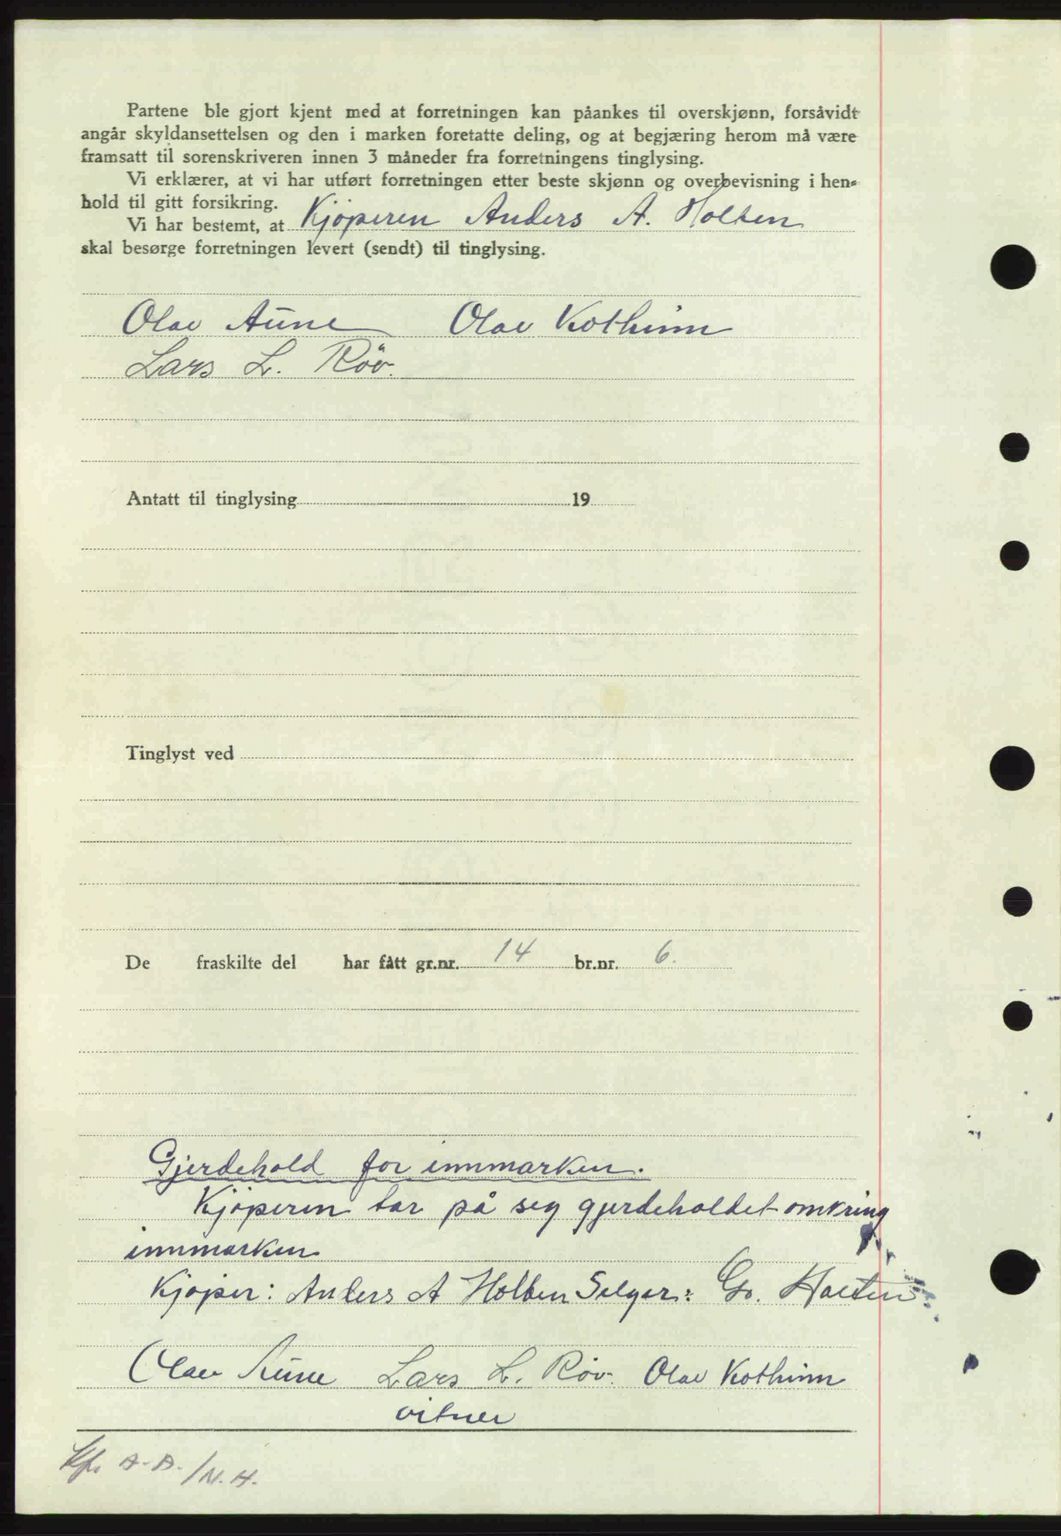 Partene ble gjort kjent med at forretningen kan påankes til overskjønn, forsåvidt
angår skyldansettelsen og den i marken foretatte deling, og at begjæring herom må være
framsatt til sorenskriveren innen 3 måneder fra forretningens tinglysing.
Vi erklærer, at vi har utført forretningen etter beste skjønn og overbevisning i hen-
hold til gitt forsikring.
Vi har bestemt, at Kjöperen Anders A. Holten
skal besørge forretningen levert (sendt) til tinglysing.
Olav Aune Olav Kothinn
Lars L. Röv.
Antatt til tinglysing 19
Tinglyst ved
De fraskilte del har fått gr.nr. 14 br.nr. 6.
Gjerdehold for innmarken.
Kjöperen tar på seg gjerdeholdet omkring
innmarken
Kjöper: Anders A Holten Selger: Go. Holten
Olav Aune Lars L. Röv. Olav Kothinn
vitner
Kp. A.A./N.H.